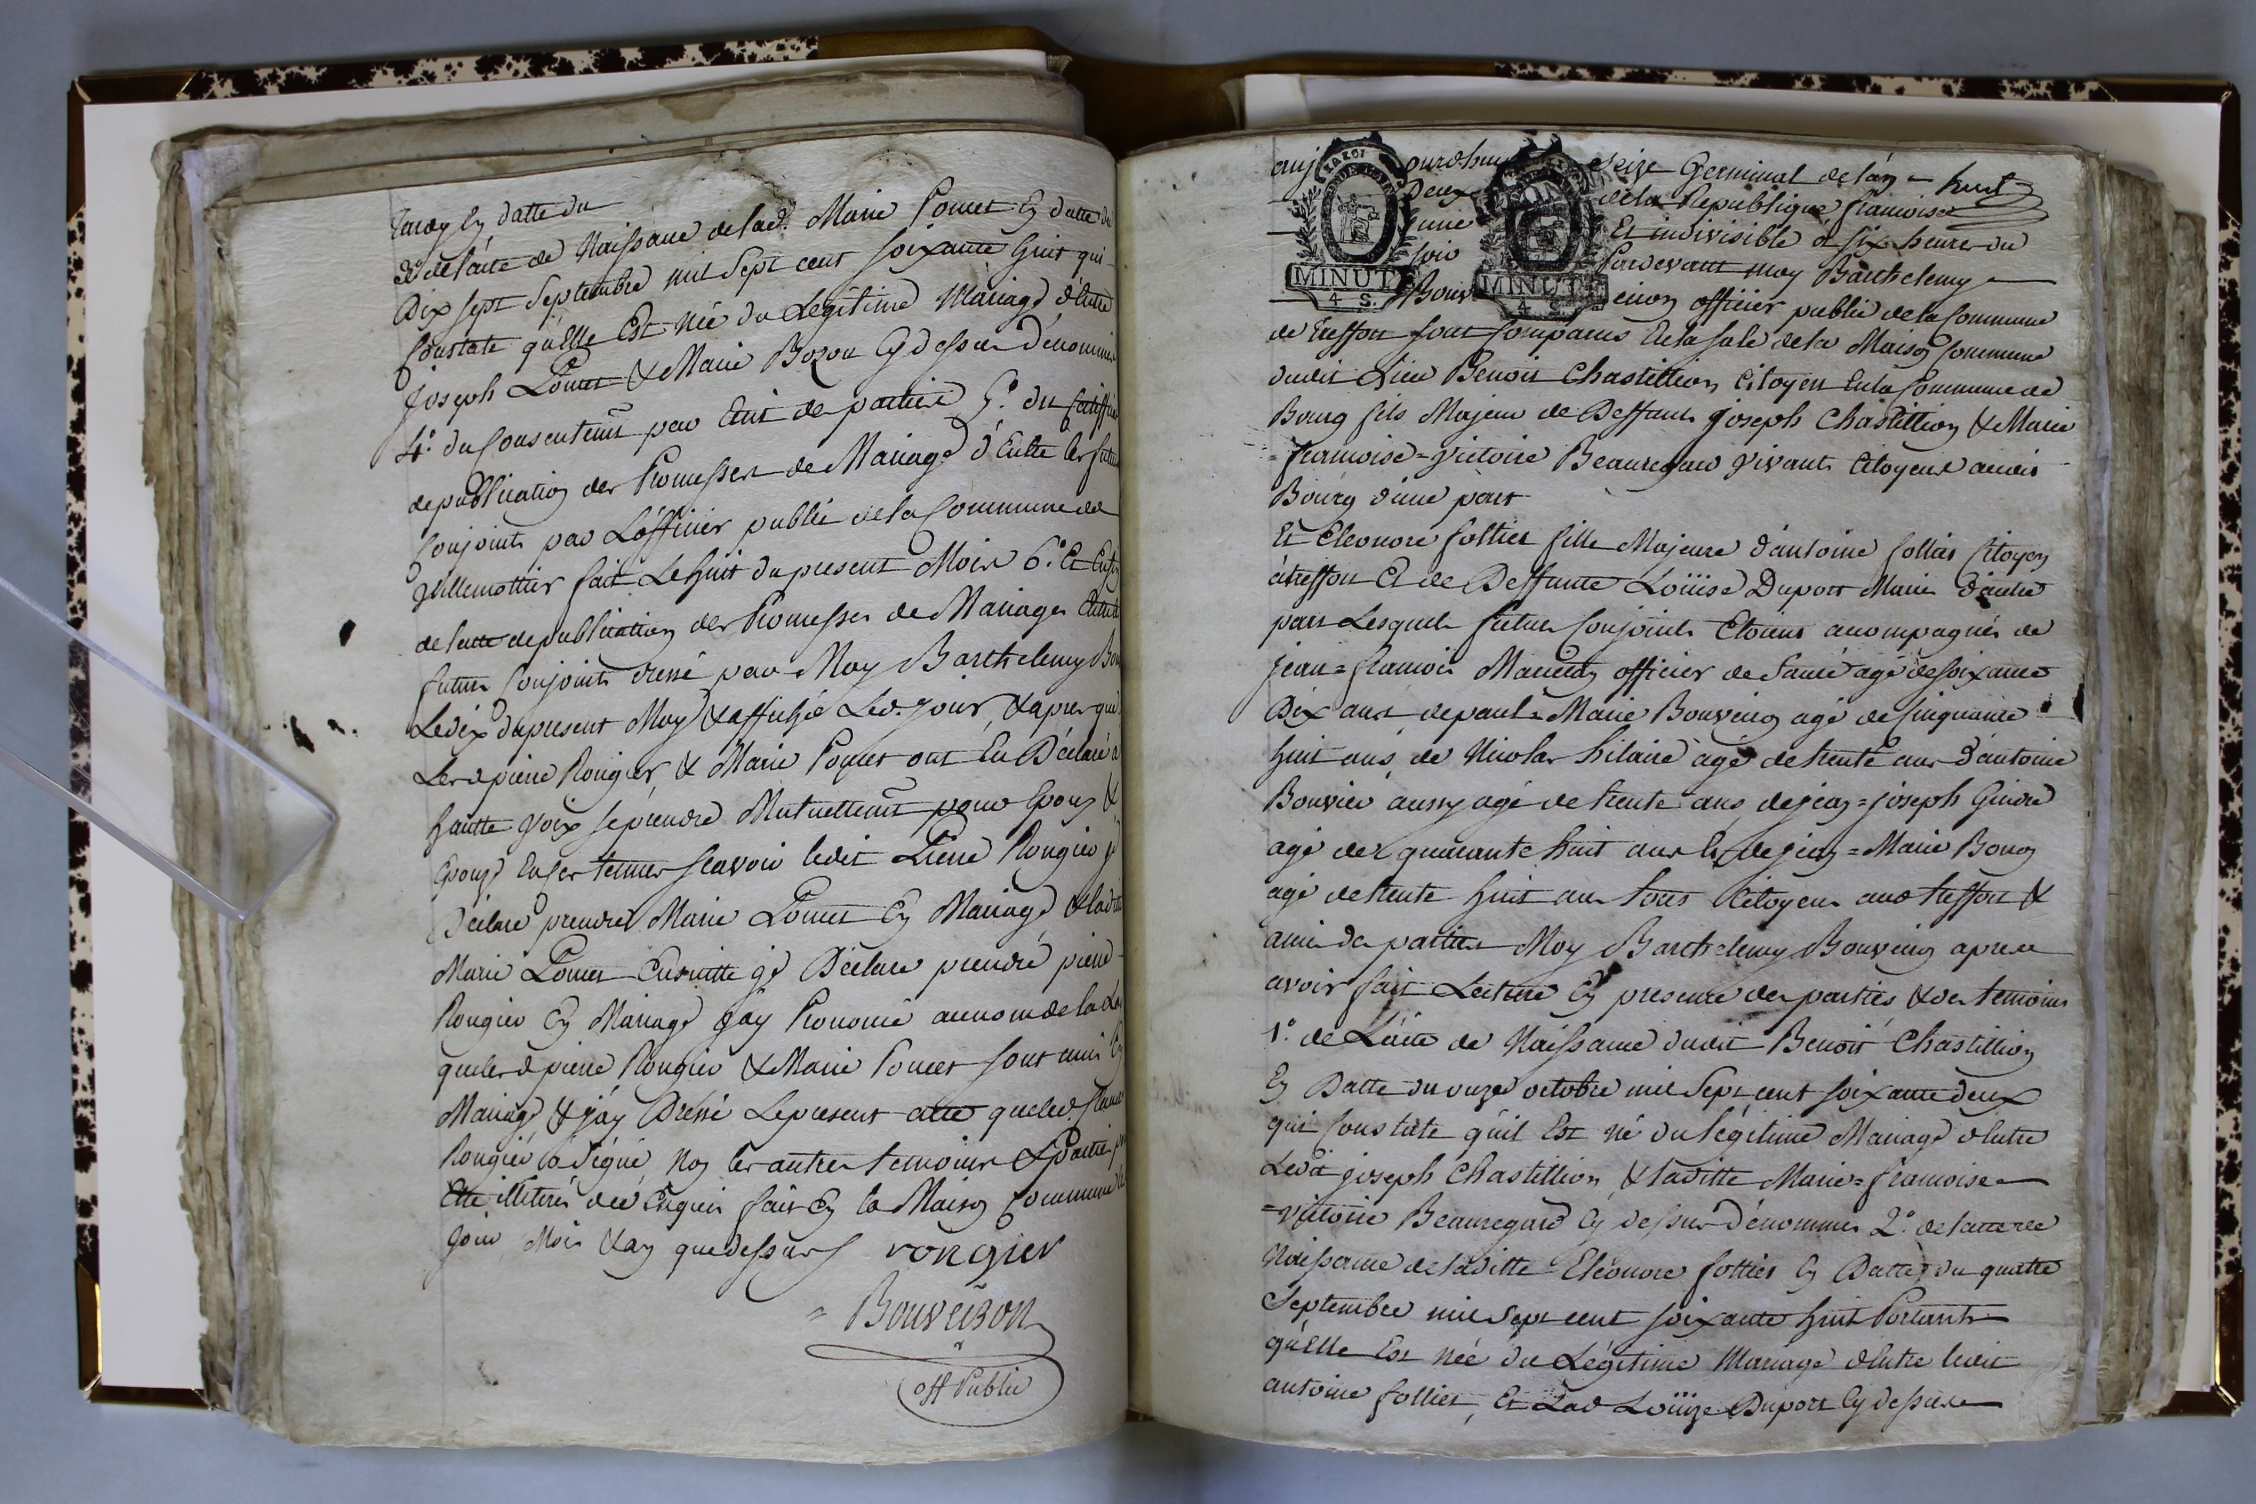 Tardy En datte du
3.° de l'acte de Naissance de lad. Marie Poncet En datte du
Dix sept Septembre mil Sept cent soixante huit qui
Constate qu'Elle Est Née du Légitime Mariage d'Entre
Joseph Poncet & Marie Bozon Cy dessus Dénommés
4.° du Consentemt par Ecrit de partie 5.° du Certifficat
de publication des Promesses de Mariage d'Entre les futurs
Conjoints par L'officier public de la Commune de
Villemottier fait Le huit du present Mois 6.° Et Enfin
de l'acte de publication des Promesses de Mariage Entre les
futurs Conjoints dressé par Moy Barthelemy Bou
Le dix du present Moy & affiché Led. jour, & apres que
Lesd pierre Rongier & Marie Poncet ont Eu Déclaré à
hautte voix se prendre Mutuellemt pour Epoux &
Epouse En ces termes scavoir ledit Pierre Rongier je
Déclare prendre Marie Poncet En Mariage & laditte
Marie Poncet Ensuitte je Déclare prendre pierre
Rongier En Mariage j'ay Prononcé au nom de la Loy
que lesd pierre Rongier & Marie Poncet sont unis En
Mariage & j'ay Dressé Le present acte que led. Pierre
Rongier a Signé Non les autres temoins & Partie pr
Etre illiterés de ce Enquis fait En la Maison Commune les
Jour Mois & an que dessus rongier
Bouveiron
off Public
aujourdhuy seize Germinal de l'an huit
Deux de la République francoise
une Et indivisible à six heures du
soir Pardevant moy Barthelemy
Bouveiron officier public de la Commune
de treffort sont Comparus En la sale de la Maison Commune
dudit Lieu Benoit Chastillion Citoyen En la Commune de
Bourg fils Majeur de Deffunt Joseph Chastillion & Marie
= francoise = Victoire Beauregard Vivants Citoyens audit
Bourg d'une part
Et Eleonore follier fille Majeure d'antoine follier Citoyen
à treffort Et de Deffunte Loüise Duport Mariés d'autre
part Lesquels futurs Conjoints Etoient accompagnés de
jean = francois officier de Santé agé de soixante
Dix ans de paul = Marie Bouveiron agé de Cinquante
huit ans de Nicolas hilaire agé de trente ans d'antoine
Bouvier aussy agé de trente ans, de jean = joseph Gindre
agé de quarante huit ans Et de jean = Marie Bozon
agé de trente huit ans tous Citoyens aud treffort &
amis de parties Moy Barthelemy Bouveiron apres
avoir fait Lecture En presence des parties & des temoins
1.° de L'acte de Naissance dudit Benoit Chastillion
En Datte du onze octobre mil Sept cent soixante deux
qui Constate qu'il Est né du légitime Mariage d'Entre
Ledit joseph Chastillion & laditte Marie = francoise
= Victoire Beauregard Cy dessus Dénommés 2.° de l'acte de
Naissance de laditte Eléonore follier En Datte du quatre
Septembre mil Sept cent soixante huit Portant
qu'Elle Est Née du Légitime Mariage d'Entre ledit
antoine follier, Et Lad Loüize Duport Cy dessus